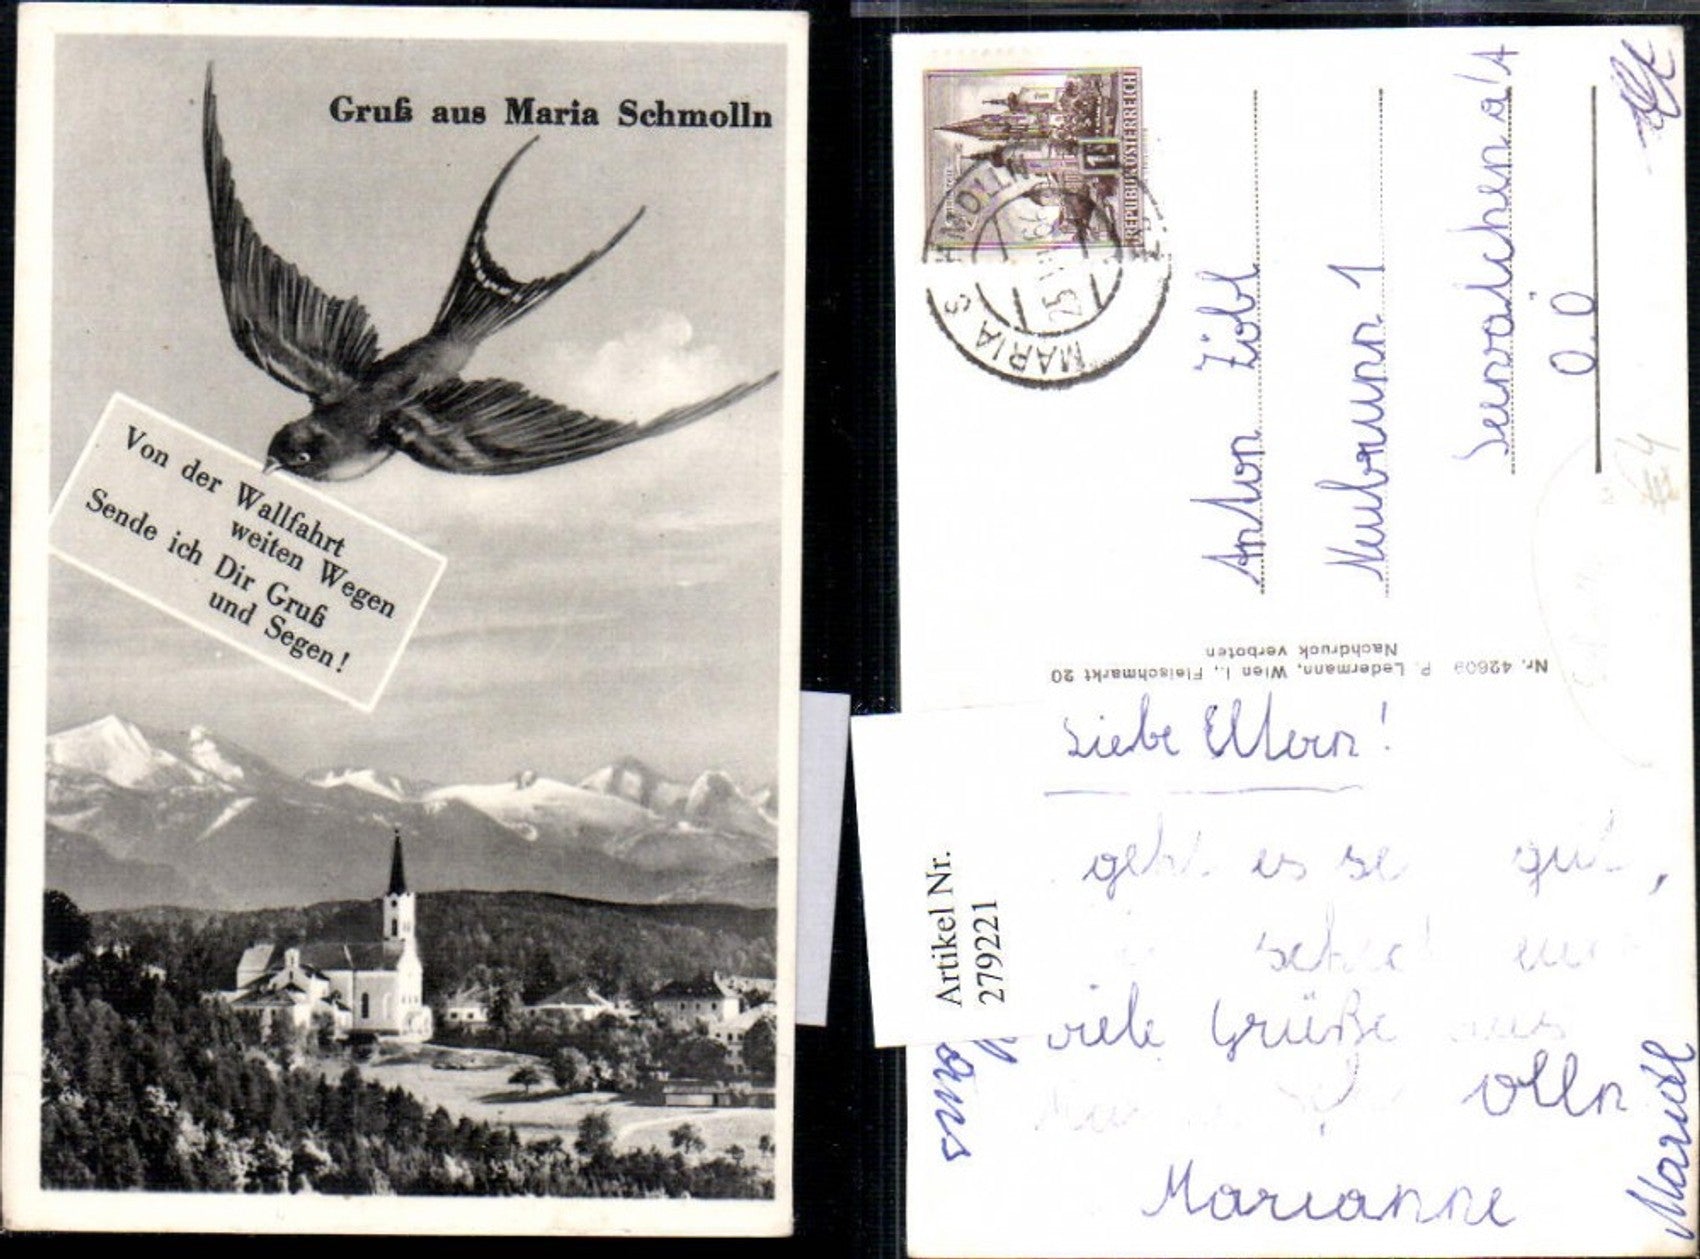 Gruß aus Maria Schmolln
Von der Wallfahrt
weiten Wegen
Sende ich Dir Gruß
und Segen!
REPUBLIK ÖSTERREICH
1
MARIA SCHMOLLN
Anton Zöbl
Neubrunn 1
Seewalchen a/A
O.Ö
Nr. 42609 P. Ledermann, Wien I., Fleischmarkt 20
Nachdruck verboten
Artikel Nr.
2792221
Liebe Eltern!
geht es se gut,
viele Grüße aus
olln
Marianne